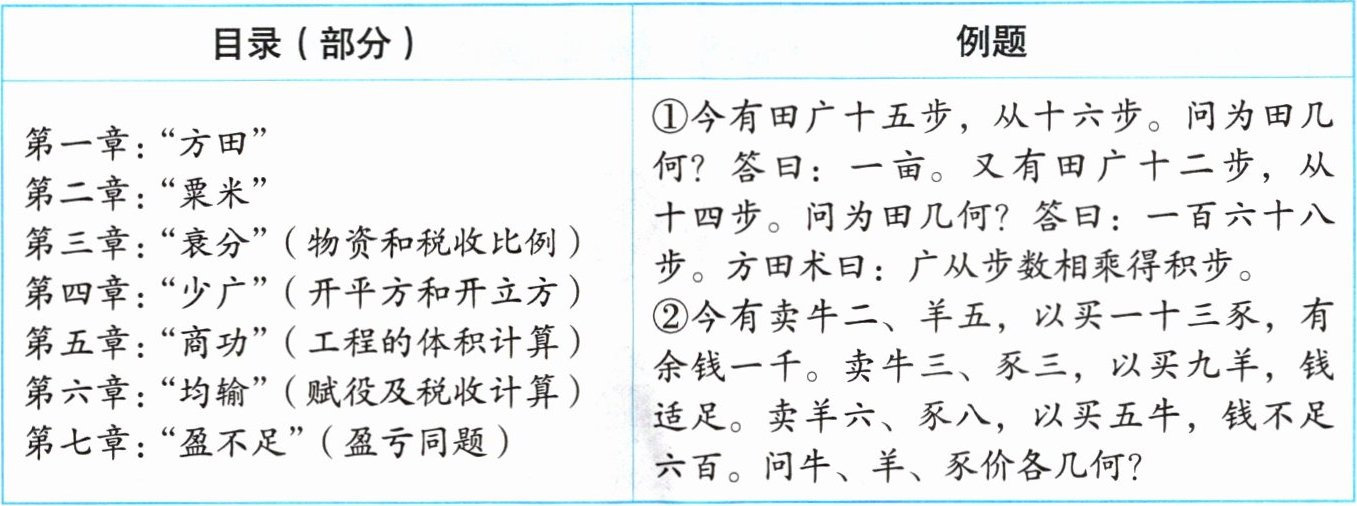 目录（部分）
例题
第一章：“方田”
第二章：“粟米”
第三章：“衰分”（物资和税收比例）
第四章：“少广”（开平方和开立方）
第五章：“商功”（工程的体积计算）
第六章：“均输”（赋役及税收计算）
第七章：“盈不足”（盈亏同题）
①今有田广十五步，从十六步。问为田几
何？答曰：一亩。又有田广十二步，从
十四步。问为田几何？答曰：一百六十八
步。方田术曰：广从步数相乘得积步。
②今有卖牛二、羊五，以买一十三豕，有
余钱一千。卖牛三、豕三，以买九羊，钱
适足。卖羊六、豕八，以买五牛，钱不足
六百。问牛、羊、豕价各几何？